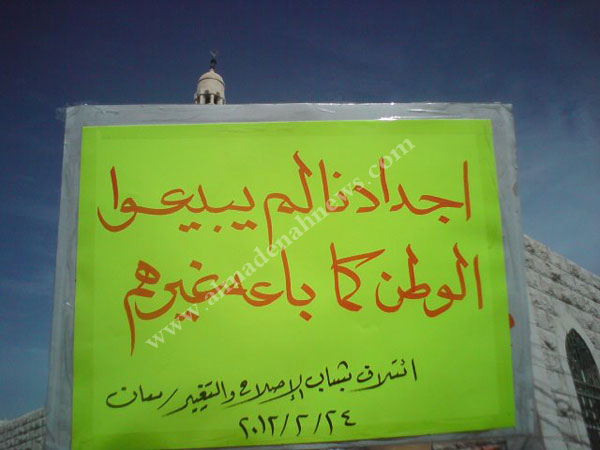 اجدادنا لم يبيعوا
الوطن كما باعه غيرهم
ائتلاف شباب الإصلاح والتغيير / معان
٢٠١٢/٢/٢٤
www.almadenahnews.com